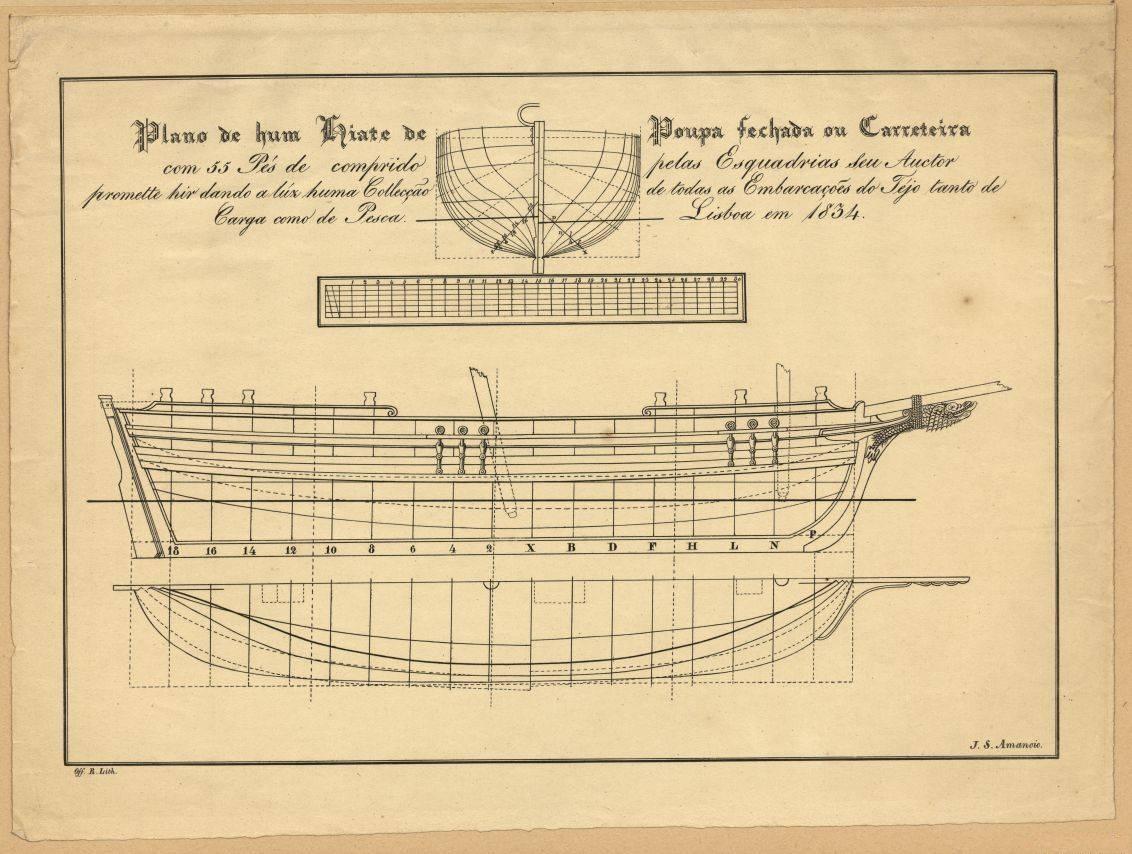 Plano de hum Hiate de Poupa fechada ou Carreteira
com 55 Pés de comprido pelas Esquadrias seu Auctor
promette hir dando a lúz huma Collecção de todas as Embarcações do Téjo tanto de
Carga como de Pesca. Lisboa em 1834.
1 2 3 4 5 6 7 8 9 10 11 12 13 14 15 16 17 18 19 20 21 22 23 24 25 26 27 28 29 30
18 16 14 12 10 8 6 4 2 X B D F H L N P
J. S. Amancio.
Off. R. Lith.